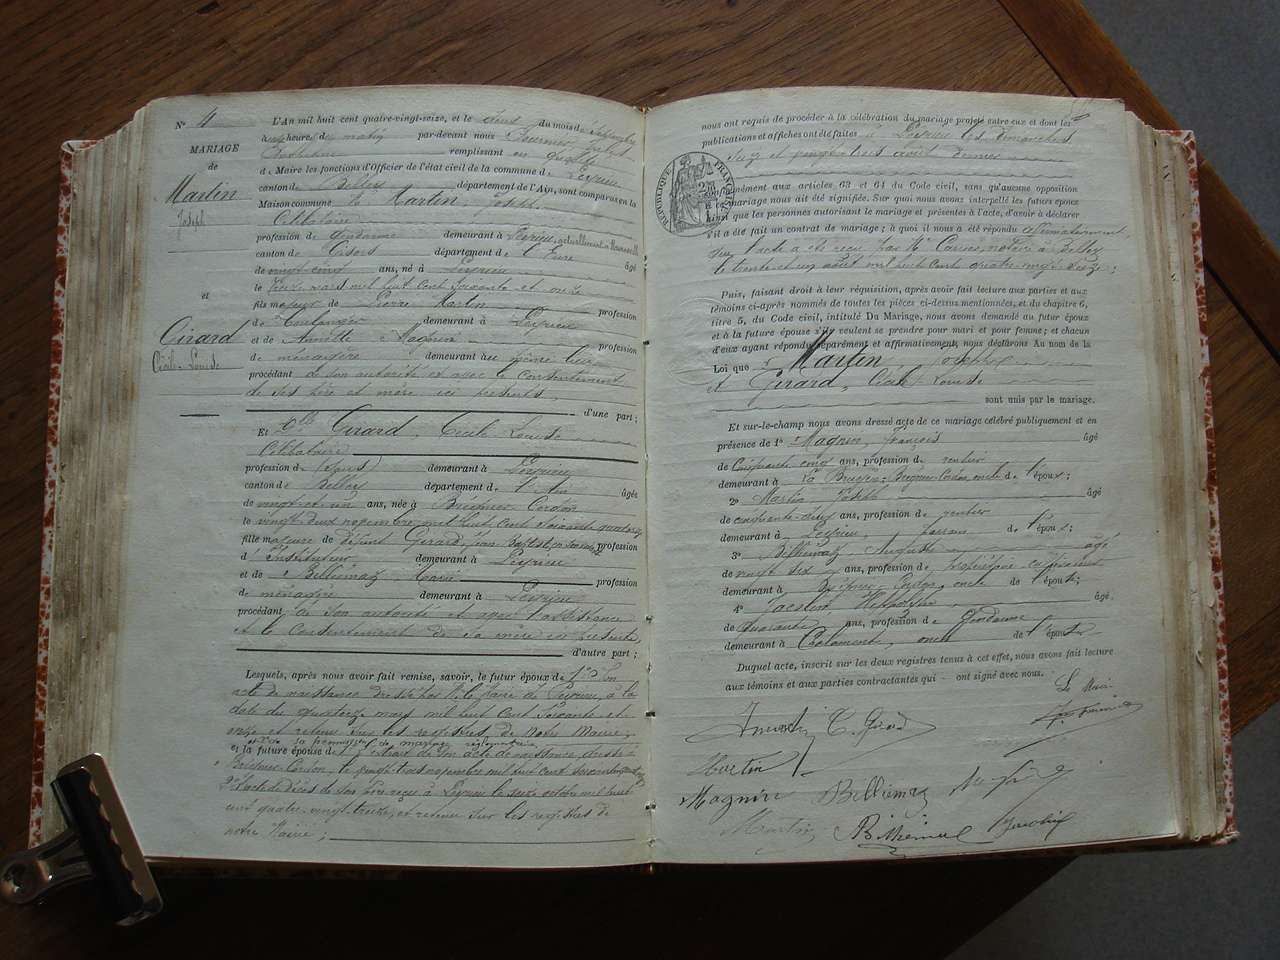 N° 4
MARIAGE
de
Martin
Joseph
et
Girard
Cécile-Louise
L'An mil huit cent quatre-vingt-seize, et le deux du mois de Septembre
à heure du matin par-devant nous Fournier
remplissant en qualité
de Maire les fonctions d'Officier de l'état civil de la commune de Peyrieu
canton de Belley département de l'Ain, sont comparus en la
Maison commune, le Martin, Joseph
Célibataire
profession de Gendarme demeurant à Peyrieu, actuellement à
canton de Gisors département de l'Eure âgé
de vingt cinq ans, né à Peyrieu
le mars mil huit cent soixante et onze
fils majeur de Pierre Martin profession
de Boulanger demeurant à Peyrieu
et de Magnin profession
de ménagère demeurant au même lieu
procédant de son autorité et avec le consentement
de ses père et mère ici présents,
d'une part ;
Et Dlle Girard, Cécile Louise
Célibataire
profession de (sans) demeurant à Peyrieu
canton de Belley département de l'Ain âgée
de vingt-et-un ans, née à Brégnier Cordon
le vingt deux novembre mil huit cent soixante quatorze
fille majeure de défunt Girard, Jean Baptiste profession
d'Instituteur demeurant à Peyrieu
et de Billiemaz, Marie profession
de ménagère demeurant à Peyrieu
procédant de son autorité et avec l'assistance
et le consentement de sa mère ici présente
d'autre part ;
Lesquels, après nous avoir fait remise, savoir, le futur époux de 1° son
acte de naissance dressé par M. le Maire de Peyrieu, à la
date du quatorze mars mil huit cent soixante et
onze et retenu sur les registres de notre Mairie,
et 2° de sa permission de mariage réglementaire
et la future épouse de 1° l'extrait de son acte de naissance dressé à
Brégnier-Cordon, le vingt trois novembre mil huit cent soixante quatorze
2° l'acte de décès de son père reçu à Peyrieu le seize octobre mil huit
cent quatre-vingt-treize, et retenu sur les registres de
notre Mairie ;
nous ont requis de procéder à la célébration du mariage projeté entre eux et dont les
publications et affiches ont été faites à Peyrieu les dimanches
seize et vingt trois août dernier
RÉPUBLIQUE FRANÇAISE
conformément aux articles 63 et 64 du Code civil, sans qu'aucune opposition
audit mariage nous ait été signifiée. Sur quoi nous avons interpellé les futurs époux
ainsi que les personnes autorisant le mariage et présentes à l'acte, d'avoir à déclarer
s'il a été fait un contrat de mariage ; à quoi il nous a été répondu affirmativement
que l'acte a été reçu par Me notaire à Belley
le trente et un août mil huit cent quatre-vingt-seize ;
Puis, faisant droit à leur réquisition, après avoir fait lecture aux parties et aux
témoins ci-après nommés de toutes les pièces ci-dessus mentionnées, et du chapitre 6,
titre 5, du Code civil, intitulé Du Mariage, nous avons demandé au futur époux
et à la future épouse s'ils veulent se prendre pour mari et pour femme ; et chacun
d'eux ayant répondu séparément et affirmativement, nous déclarons Au nom de la
Loi que Martin Joseph
et Girard, Cécile-Louise
sont unis par le mariage.
Et sur-le-champ nous avons dressé acte de ce mariage célébré publiquement et en
présence de 1° Magnin, François âgé
de cinquante cinq ans, profession de rentier
demeurant à La Bruyère, Brégnier Cordon oncle de l'époux ;
2° Martin Joseph âgé
de cinquante-cinq ans, profession de rentier
demeurant à Peyrieu, parrain de l'époux ;
3° Billiemaz Auguste âgé
de vingt six ans, profession de
demeurant à Brégnier-Cordon, oncle de l'épouse ;
4° Hippolyte âgé
de Quarante ans, profession de Gendarme
demeurant à oncle de l'épouse
Duquel acte, inscrit sur les deux registres tenus à cet effet, nous avons fait lecture
aux témoins et aux parties contractantes qui ont signé avec nous.
Le Maire
C. Girard
Martin
Magnin Billiemaz
Martin